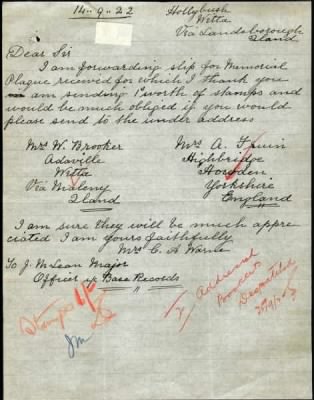 14-9-22
Hollybush
Witta
Via Landsborough
Qland
Dear Sir
I am forwarding slip for Memorial
Plaque received for which I thank you
am sending 1/ worth of stamps and
would be much obliged if you would
please send to the under address
Mrs W. Brooker
Adaville
Witta
Via Maleny
Qland
Mrs A.
Highbridge
Howden
Yorkshire
England
I am sure they will be much appre
ciated I am yours faithfully
Mrs C. A. Warne
To J. M Lean Major
Officer i/c Base Records
Stamps 1/-
JM
2 Additional
Despatched